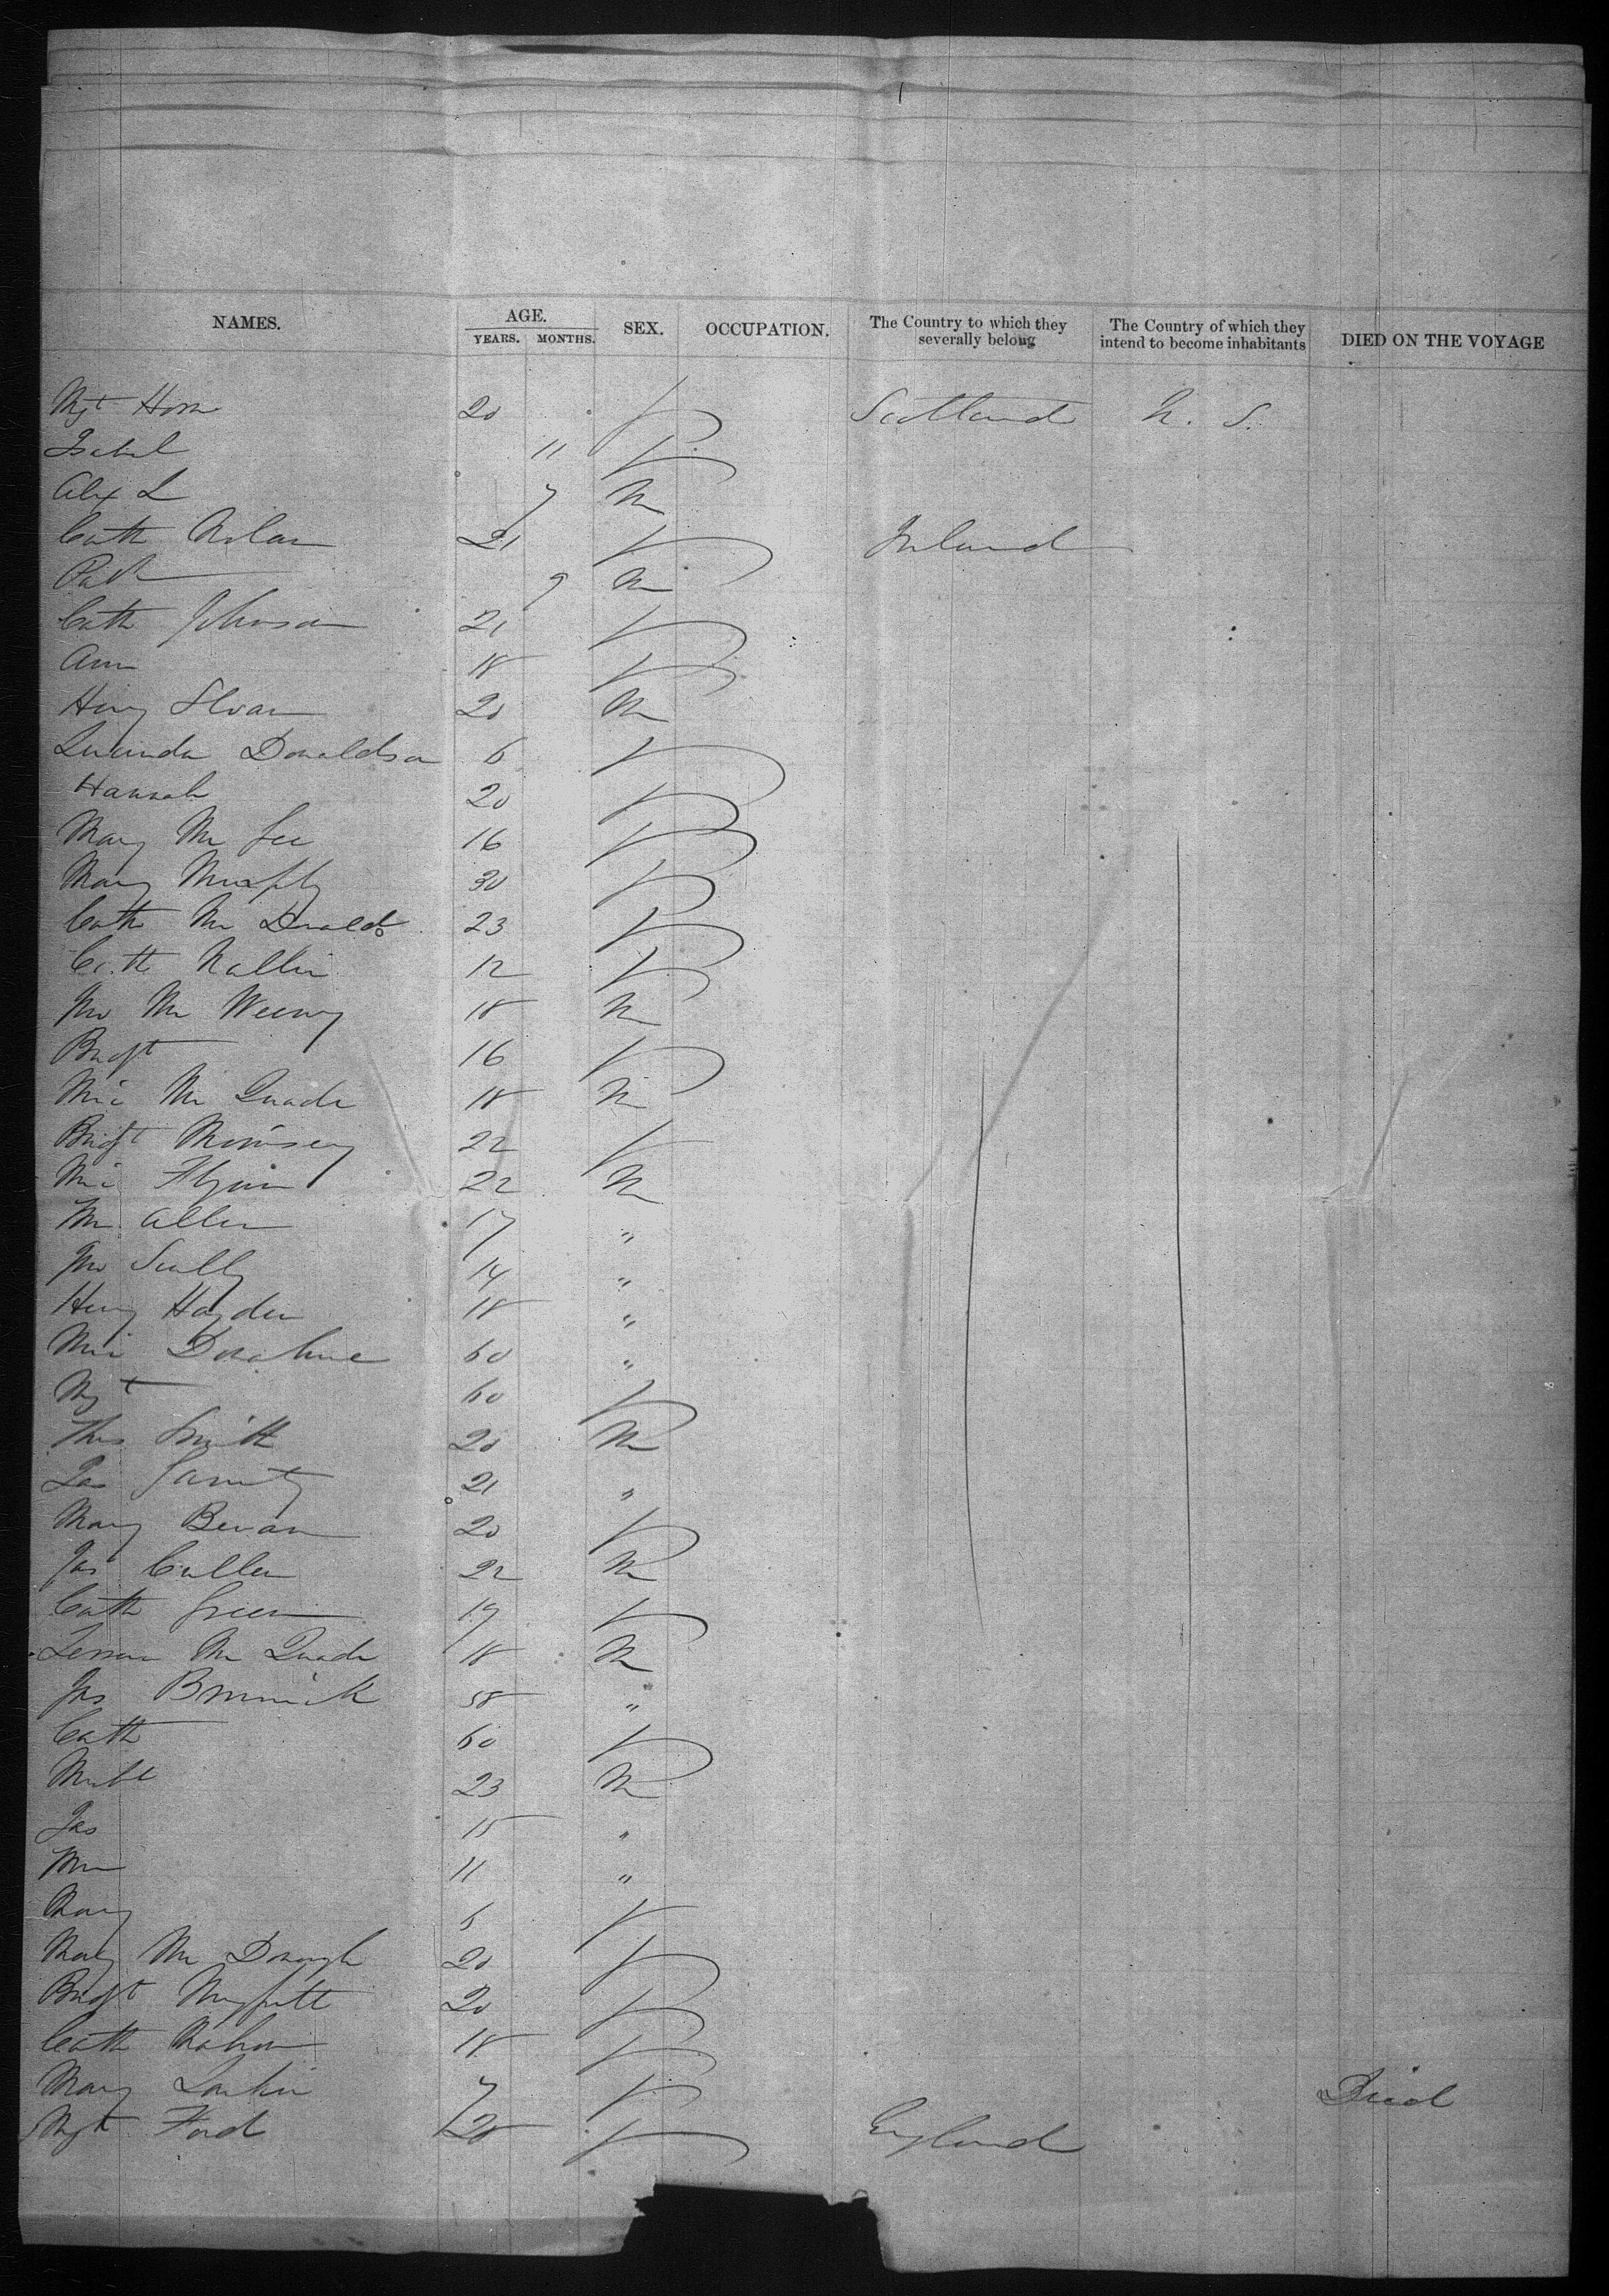 NAMES. AGE. YEARS. MONTHS. SEX. OCCUPATION. The Country to which they severally belong The Country of which they intend to become inhabitants DIED ON THE VOYAGE
Mgt Horn 20 F Scotland U. S.
Isabel 11 F
Alex L 7 M
Cath Nolan 21 F Ireland
Patk 9 M
Cath Johnson 21 F
Ann 18 F
Henry Sloan 20 M
Lucinda Donaldson 6 F
Hannah 20 F
Mary Mc Gee 16 F
Mary Murphy 30 F
Cath Mc Donald 23 F
Cath Nallin 12 F
Jno Mc Weeny 18 M
Bridgt 16 F
Mic Mc Quade 18 M
Bridgt 22 F
Mic Flynn 22 M
Wm Allen 17 "
Jno Scully 14 "
Henry Hayden 18 "
Mic Donahue 60 "
Mgt 60 F
Thos Smith 20 M
Jas Garrity 21 "
Mary Bevan 20 F
Jas Cullen 22 M
Cath Green 19 F
Mc Quade 18 M
Jas 58 "
Cath 60 F
23 M
Jas 15 "
Wm 11 "
Mary 6 F
Mary Mc Donough 20 F
Bridgt 20 F
Cath Mahon 18 F
Mary Larkin 7 F Died
Mgt Ford 20 F England